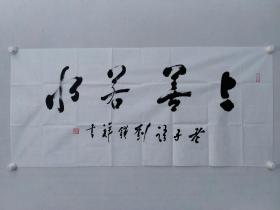 上善若水
老子语 刘铁祥书